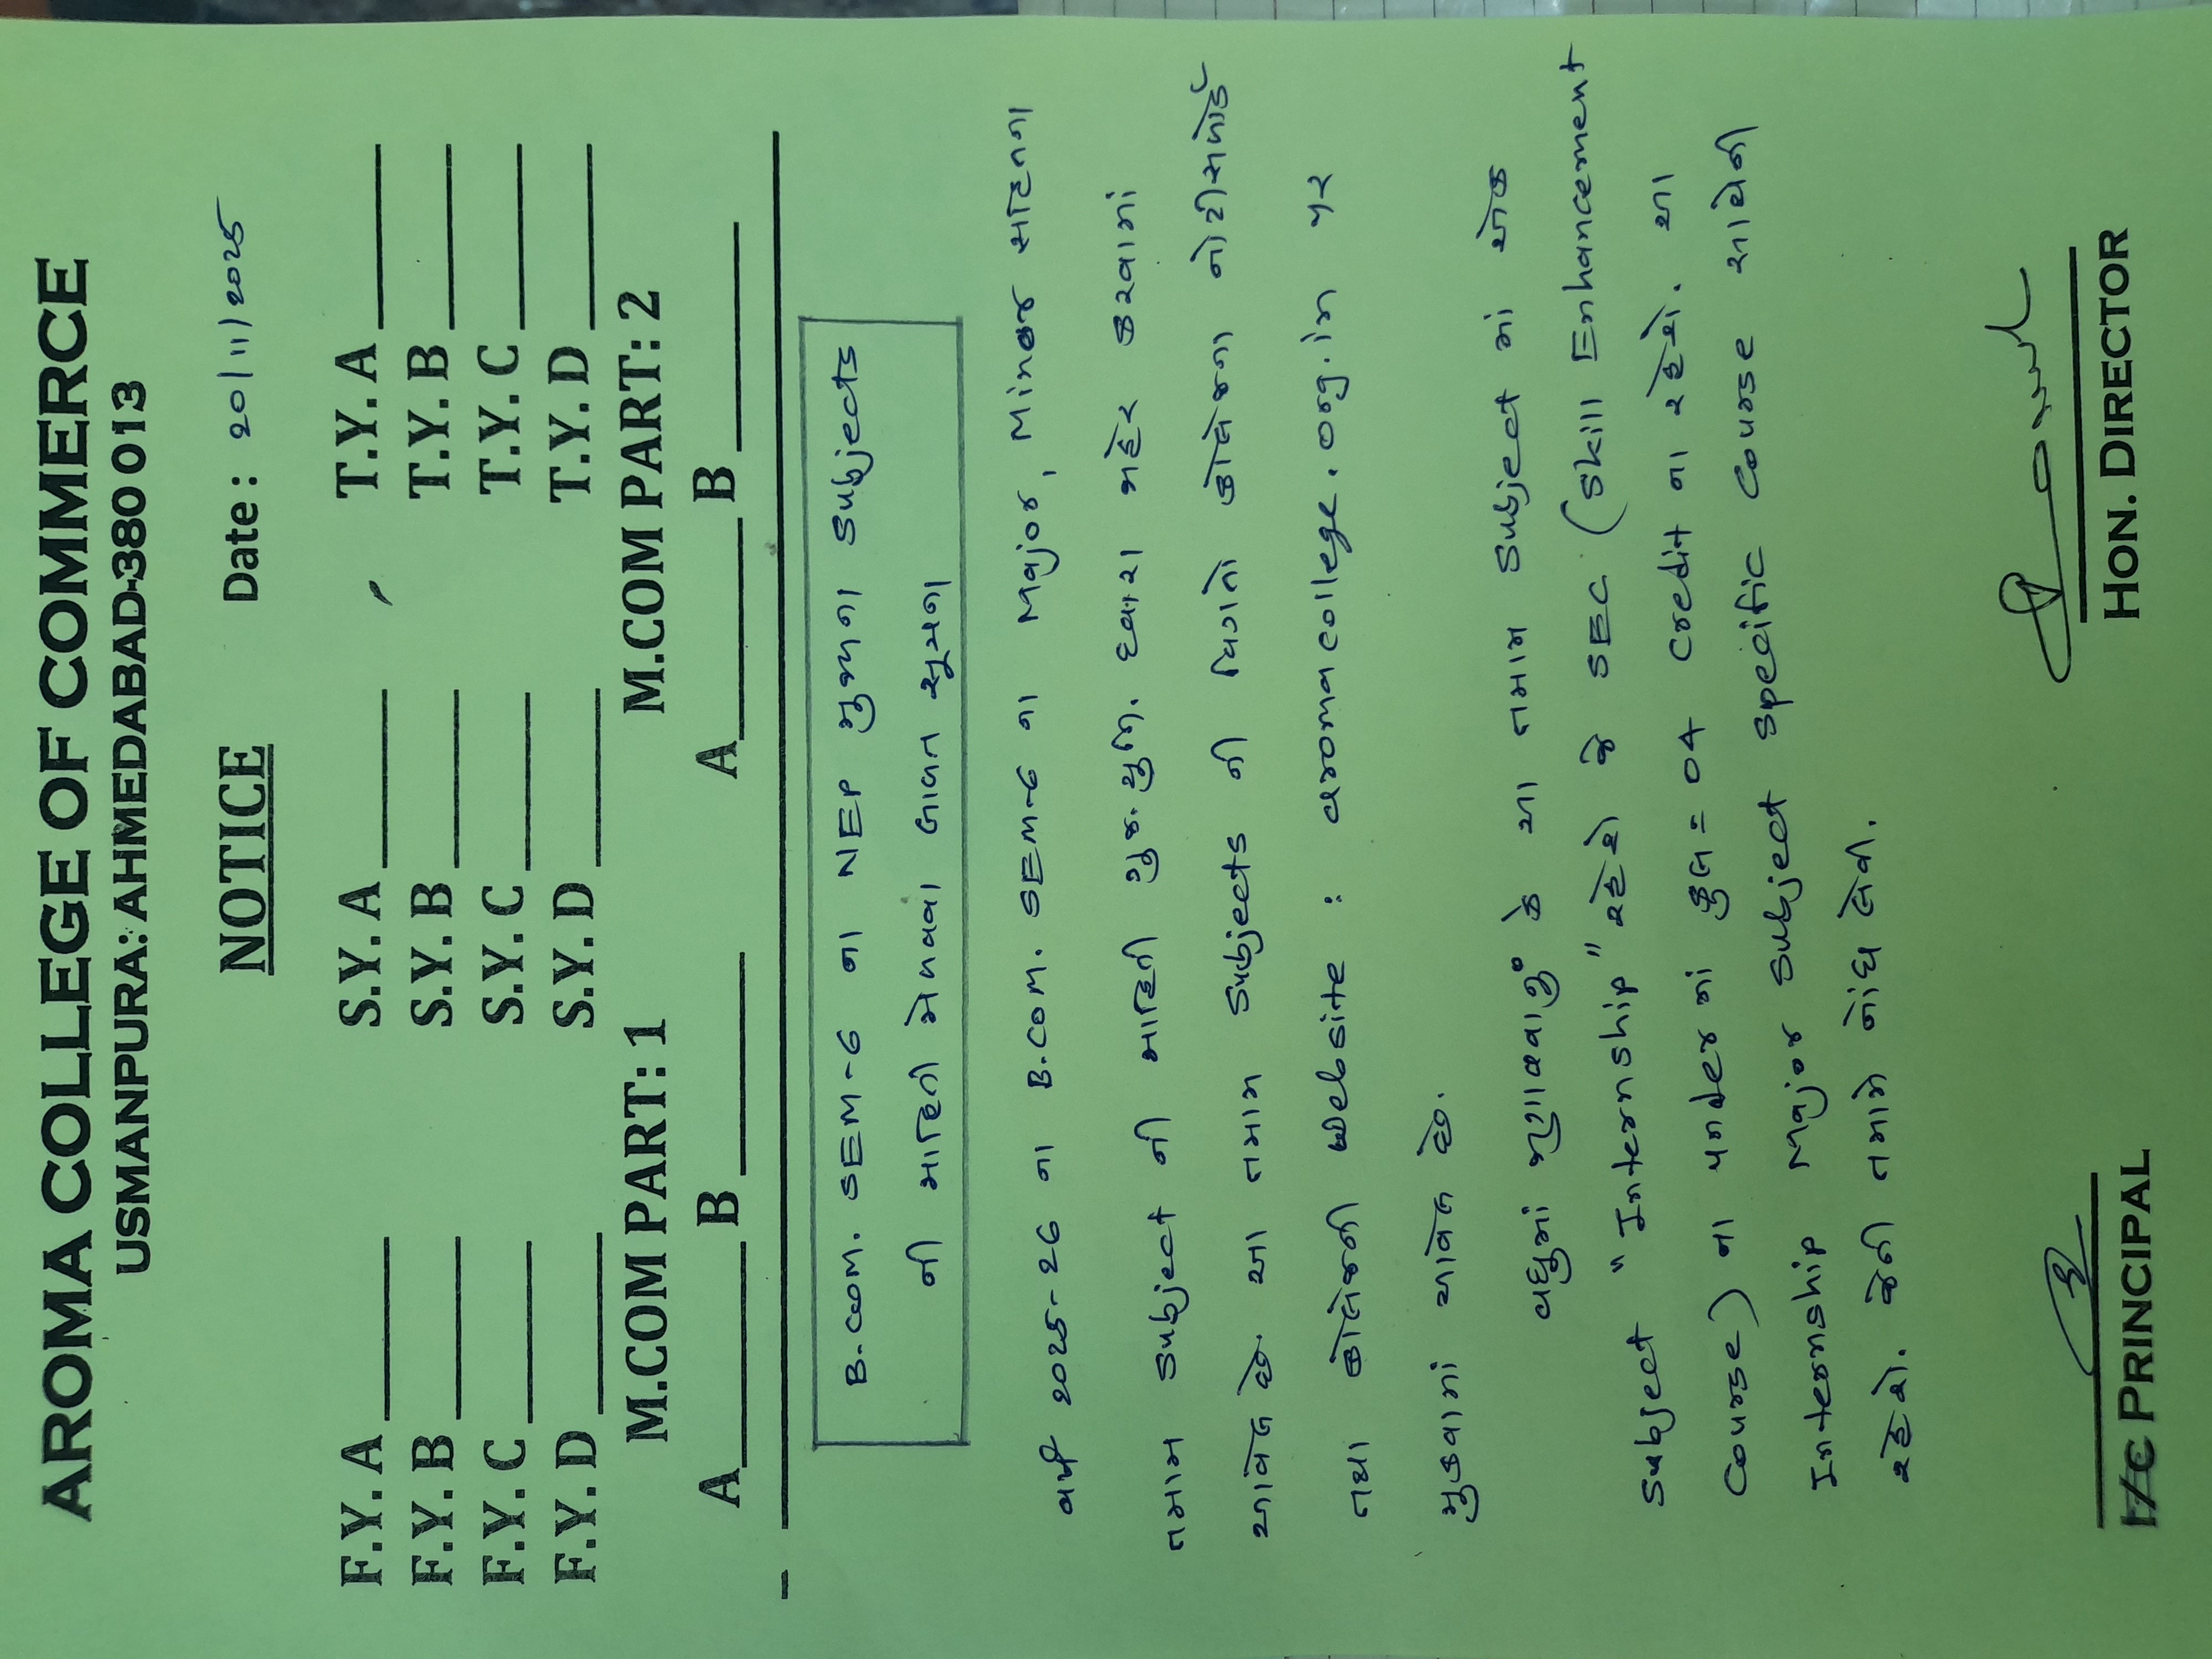 AROMA COLLEGE OF COMMERCE
USMANPURA: AHMEDABAD-380 013
NOTICE Date: 20/11/2025
F.Y. A ______ S.Y. A ______ T.Y. A ______
F.Y. B ______ S.Y. B ______ T.Y. B ______
F.Y. C ______ S.Y. C ______ T.Y. C ______
F.Y. D ______ S.Y. D ______ T.Y. D ______
M.COM PART: 1 M.COM PART: 2
A ______ B ______ A ______ B ______
B.com. SEM-6 ના NEP મુજબના Subjects
ની માહિતી મેળવવા બાબત સૂચના
વર્ષ 2025-26 ના B.COM. SEM-6 ના Major, Minor સહિતના
તમામ Subject ની માહિતી ગુજ. યુનિ. દ્વારા જાહેર કરવામાં
આવેલ છે. આ તમામ Subjects ની વિગતો કોલેજના નોટીસબોર્ડ
તથા કોલેજની Website : aromacollege.org.in પર
મુકવામાં આવેલ છે.
વધુમાં જણાવવાનું કે આ તમામ Subject માં એક
Subject "Internship" રહેશે જે SEC (Skill Enhancement
Course) ના under માં કુલ = 04 Credit ના રહેશે. આ
Internship Major Subject Specific Course સાથેની
રહેશે. જેની તમામે નોંધ લેવી.
I/C PRINCIPAL HON. DIRECTOR